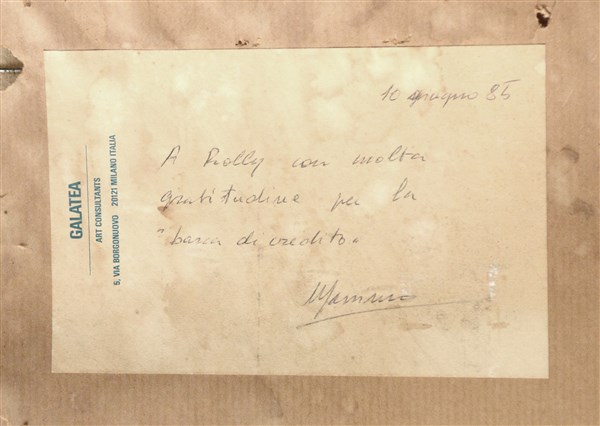 GALATEA
ART CONSULTANTS
5, VIA BORGONUOVO 20121 MILANO ITALIA
10 giugno 85
A Rolly con molta
gratitudine per la
"banca di credito.